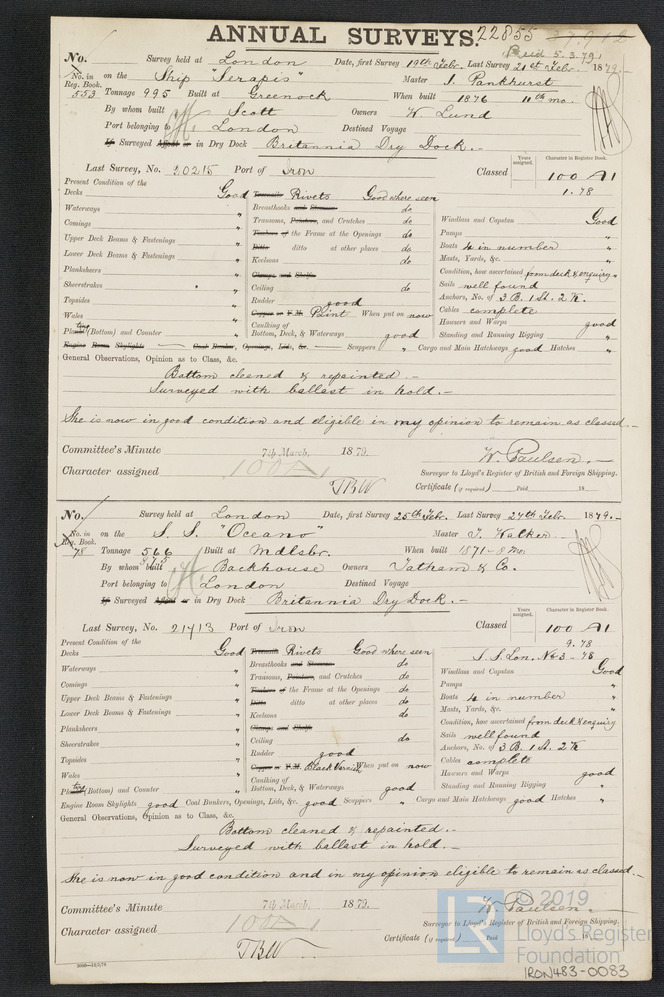 ANNUAL SURVEYS. 22855
Recd 5.3.79
No. Survey held at London Date, first Survey 19th Feby. Last Survey 21st Feby. 1879.
No. in Reg. Book. 553 on the Ship "Serapis" Master J. Pankhurst
Tonnage 995 Built at Greenock When built 1876 11th mo.
By whom built Scott Owners W. Lund
Port belonging to London Destined Voyage
If Surveyed Afloat or in Dry Dock Britannia Dry Dock.-
Last Survey, No. 20215 Port of Iron Classed Years assigned. Character in Register Book. 100 A1
1.78
Present Condition of the
Decks Good Treenails Rivets Good where seen
Waterways " Breasthooks and Stemson do
Comings " Transoms, Pointers, and Crutches do Windlass and Capstan Good
Upper Deck Beams & Fastenings " Timbers of the Frame at the Openings do Pumps "
Lower Deck Beams & Fastenings " Ditto ditto at other places do Boats 4 in number
Planksheers " Keelsons do Masts, Yards, &c. "
Sheerstrakes " Clamps and Shelfs Condition, how ascertained from deck & enquiry
Topsides " Ceiling do Sails well found
Wales " Rudder good Anchors, No. of 3 B. 1 St. 2 K.
Plating (Bottom) and Counter " Copper or Y.M. Paint When put on now Cables complete
Caulking of Bottom, Deck, & Waterways good Hawsers and Warps good
Standing and Running Rigging "
Engine Room Skylights — Coal Bunker, Openings, Lids, &c. — Scuppers " Cargo and Main Hatchways good Hatches "
General Observations, Opinion as to Class, &c.
Bottom cleaned & repainted.-
Surveyed with ballast in hold.-
She is now in good condition and eligible in my opinion to remain as classed.-
Committee's Minute 7th March, 1879. W. Paulsen.-
Character assigned 100A1 Surveyor to Lloyd's Register of British and Foreign Shipping.
TBW Certificate (if required) Paid 18
No. Survey held at London Date, first Survey 25th Feb. Last Survey 27th Feb. 1879.-
No. in Reg. Book. 78 on the S.S. "Oceano" Master J. Walker
Tonnage 566 Built at Mdlsbr. When built 1871-8 mo.
By whom built Backhouse Owners Tatham & Co.
Port belonging to London Destined Voyage
If Surveyed Afloat or in Dry Dock Britannia Dry Dock.-
Last Survey, No. 21413 Port of Iron Classed Years assigned. Character in Register Book. 100 A1
9.78
S.S. Lon. No 3-78
Present Condition of the
Decks Good Treenails Rivets Good where seen
Waterways " Breasthooks and Stemson do Windlass and Capstan Good
Comings " Transoms, Pointers, and Crutches do Pumps "
Upper Deck Beams & Fastenings " Timbers of the Frame at the Openings do Boats 4 in number
Lower Deck Beams & Fastenings " Ditto ditto at other places do Masts, Yards, &c. "
Planksheers " Keelsons do Condition, how ascertained from deck & enquiry
Sheerstrakes " Clamps and Shelfs Sails well found
Topsides " Ceiling do Anchors, No. of 3 B. 1 St. 2 K
Wales " Rudder good Cables complete
Plating (Bottom) and Counter " Copper or Y.M. Black Varnish When put on now Hawsers and Warps good
Caulking of Bottom, Deck, & Waterways good Standing and Running Rigging "
Engine Room Skylights good Coal Bunkers, Openings, Lids, &c. good Scuppers " Cargo and Main Hatchways good Hatches "
General Observations, Opinion as to Class, &c.
Bottom cleaned & repainted.-
Surveyed with ballast in hold.-
She is now in good condition and in my opinion eligible to remain as classed.-
Committee's Minute 7th March, 1879. W. Paulsen.
Character assigned 100A1 Surveyor to Lloyd's Register of British and Foreign Shipping.
TBW Certificate (if required) Paid 18
© 2019
LR Lloyd's Register
Foundation
IRON483-0083